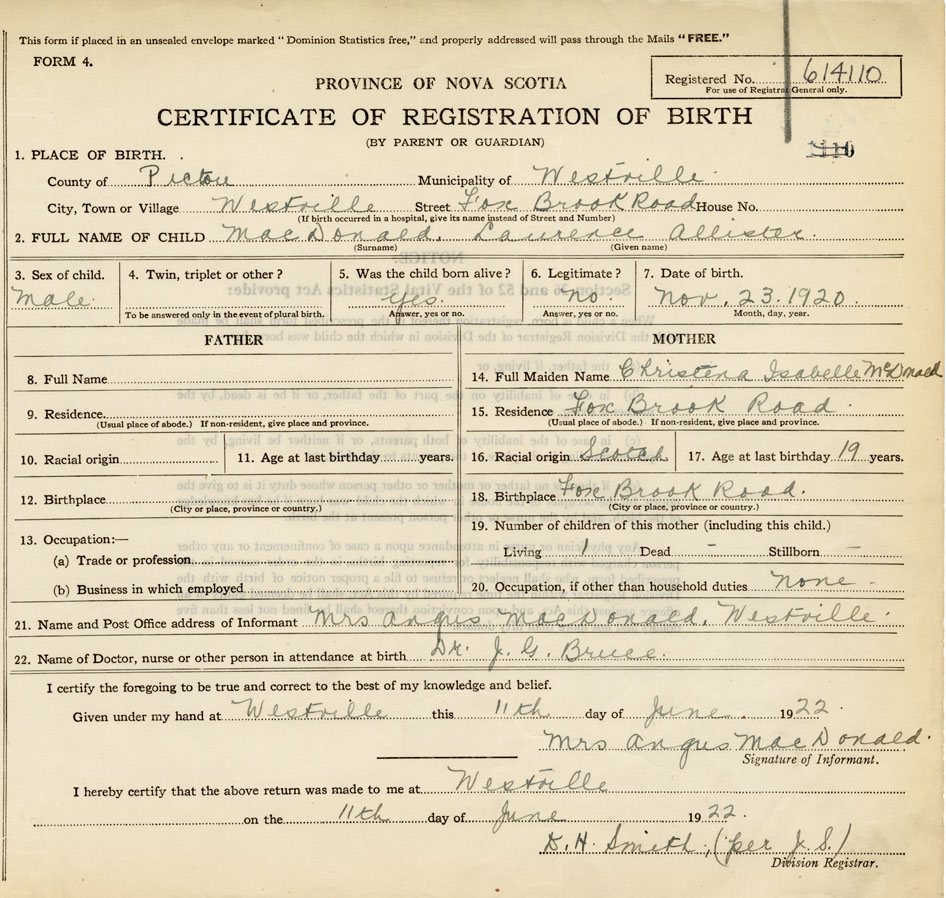 This form if placed in an unsealed envelope marked "Dominion Statistics free," and properly addressed will pass through the Mails "FREE."
FORM 4.
PROVINCE OF NOVA SCOTIA
Registered No. 614110
For use of Registrar General only.
CERTIFICATE OF REGISTRATION OF BIRTH
(BY PARENT OR GUARDIAN)
1. PLACE OF BIRTH.
County of Pictou Municipality of Westville
City, Town or Village Westville Street Fox Brook Road House No.
(If birth occurred in a hospital, give its name instead of Street and Number)
2. FULL NAME OF CHILD MacDonald, Laurence Allister.
(Surname) (Given name)
3. Sex of child. 4. Twin, triplet or other? 5. Was the child born alive? 6. Legitimate? 7. Date of birth.
Male. yes. no. Nov. 23. 1920.
To be answered only in the event of plural birth. Answer, yes or no. Answer, yes or no. Month, day, year.
FATHER MOTHER
8. Full Name 14. Full Maiden Name Christena Isabelle McDonald
9. Residence. 15. Residence Fox Brook Road
(Usual place of abode.) If non-resident, give place and province. (Usual place of abode.) If non-resident, give place and province.
10. Racial origin 11. Age at last birthday years. 16. Racial origin Scotch 17. Age at last birthday 19 years.
12. Birthplace 18. Birthplace Fox Brook Road.
(City or place, province or country.) (City or place, province or country.)
13. Occupation:— 19. Number of children of this mother (including this child.)
(a) Trade or profession Living 1 Dead - Stillborn -
(b) Business in which employed 20. Occupation, if other than household duties none.
21. Name and Post Office address of Informant Mrs Angus MacDonald, Westville
22. Name of Doctor, nurse or other person in attendance at birth Dr. J. G. Bruce.
I certify the foregoing to be true and correct to the best of my knowledge and belief.
Given under my hand at Westville this 11th day of June 1922.
Mrs Angus MacDonald.
Signature of Informant.
I hereby certify that the above return was made to me at Westville
on the 11th day of June 1922.
D. H. Smith, (per J. S.)
Division Registrar.